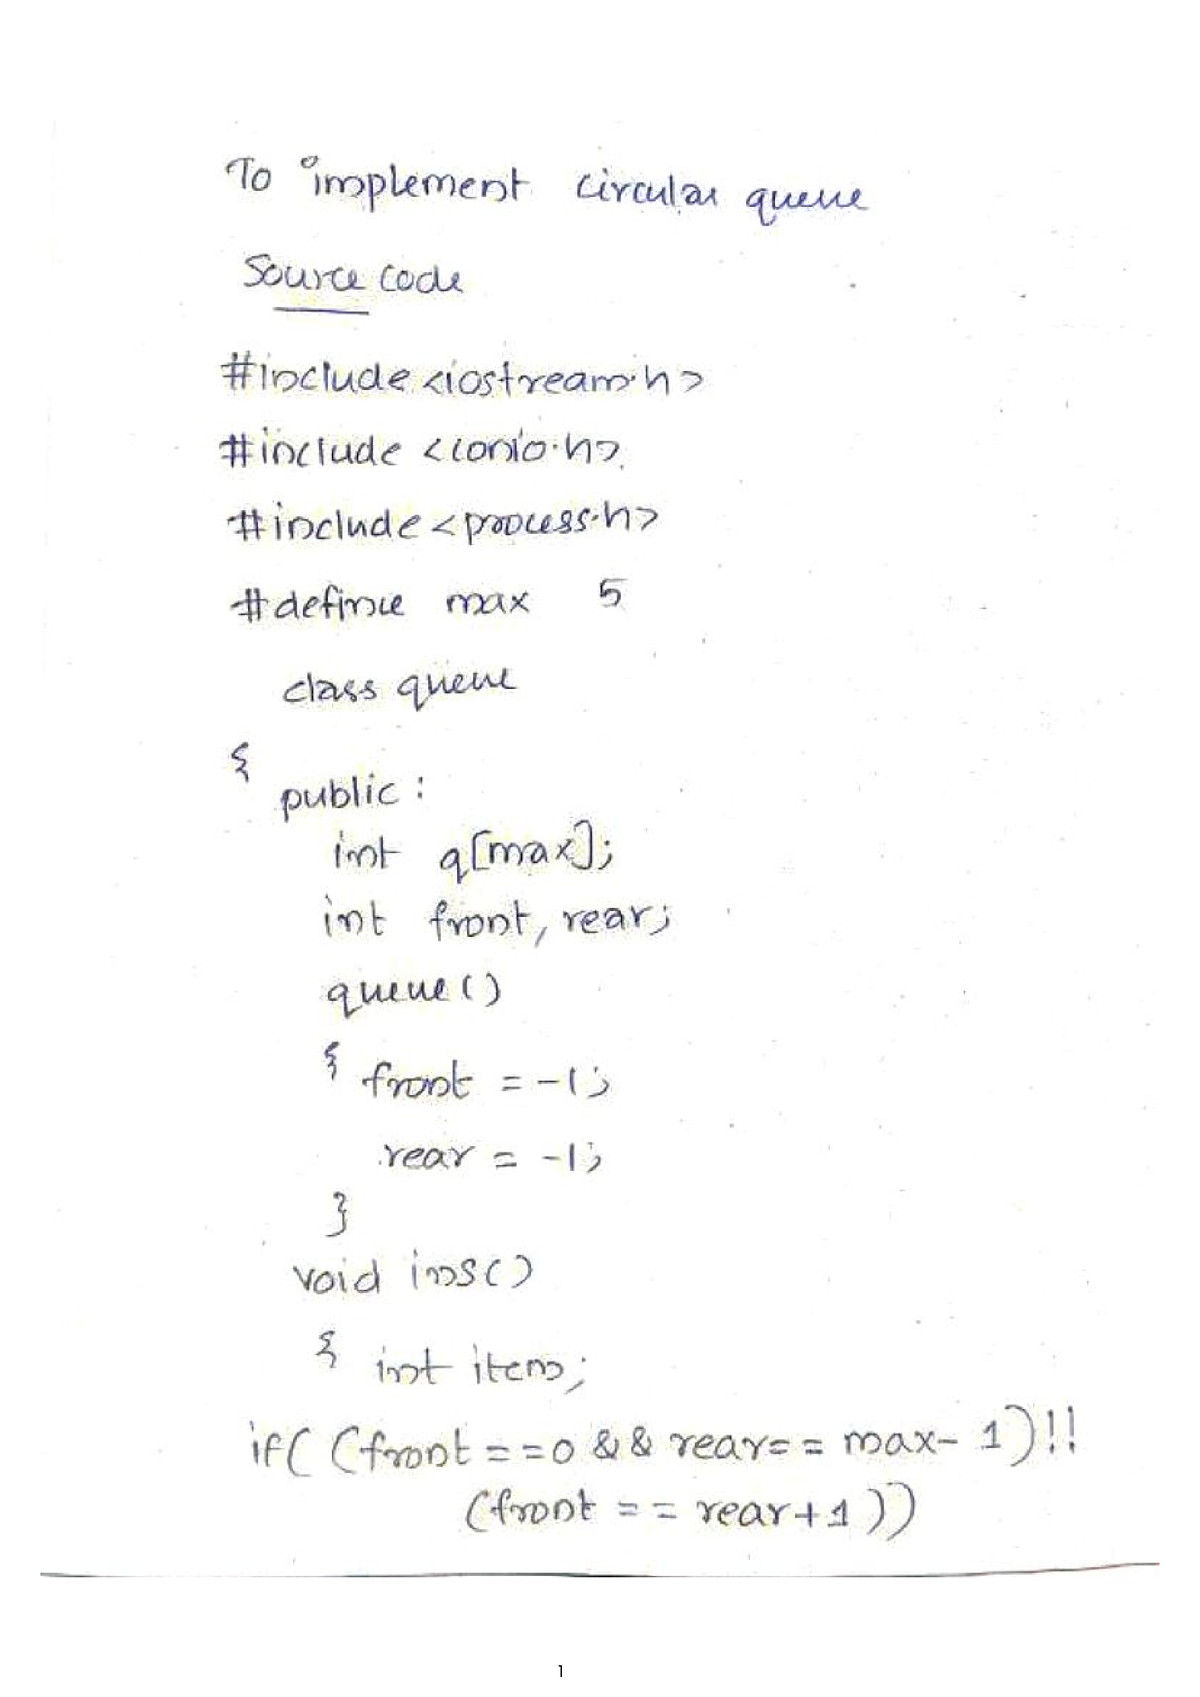 To implement circular queue
Source code
#include <iostream.h>
#include <conio.h>
#include <process.h>
#define max 5
class queue
{
public:
int q[max];
int front, rear;
queue()
{ front = -1;
rear = -1;
}
void ins()
{ int item;
if( (front==0 && rear== max-1)!!
(front == rear+1))
1